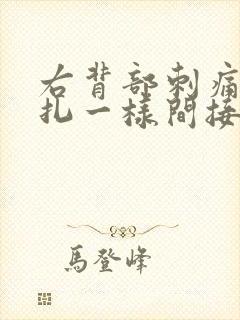 右背部刺痛
扎一樣間接
馬登峰